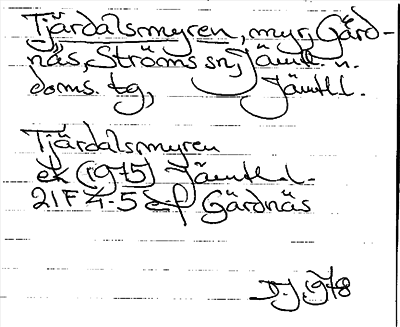 Tjärdalsmyren, myr, Gård-
näs, Ströms sn, Jämt. n.
doms. tg, Jämtl. l.
Tjärdalsmyren
ek (1975) Jämtl. l.
21F 4-5 ef Gärdnäs
D.J 1978